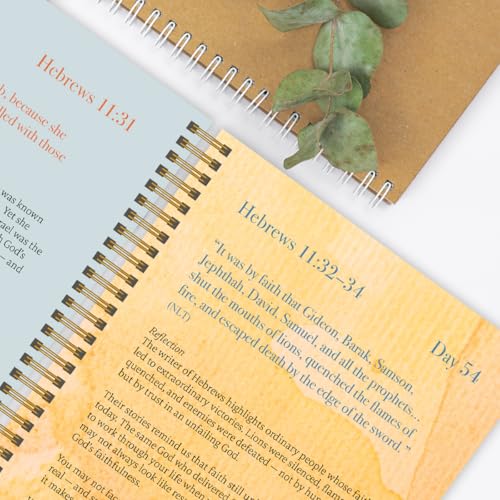 Hebrews 11:31
because she
with those
was known
Yet she
was the
God's
and
Hebrews 11:32–34
Day 54
"It was by faith that Gideon, Barak, Samson,
Jephthah, David, Samuel, and all the prophets...
shut the mouths of lions, quenched the flames of
fire, and escaped death by the edge of the sword."
(NLT)
Reflection
The writer of Hebrews highlights ordinary people whose faith
led to extraordinary victories. Lions were silenced,
quenched, and enemies were defeated — not by
but by trust in an unfailing God.
Their stories remind us that faith still
today. The same God who delivered
to work through your life when
may not always look like
God's faithfulness.
You may not
real — and
it